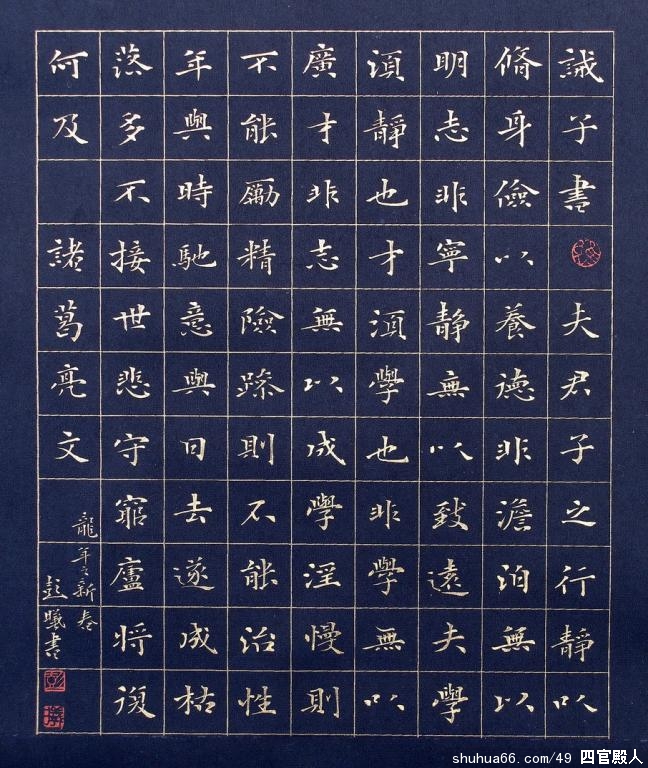 誡子書夫君子之行靜以
脩身儉以養德非澹泊無以
明志非寧靜無以致遠夫學
須靜也才須學也非學無以
廣才非志無以成學淫慢則
不能勵精險躁則不能治性
年與時馳意與日去遂成枯
落多不接世悲守窮廬將復
何及諸葛亮文
龍年之新春
彭曦書
shuhua66.com/49 四官殿人